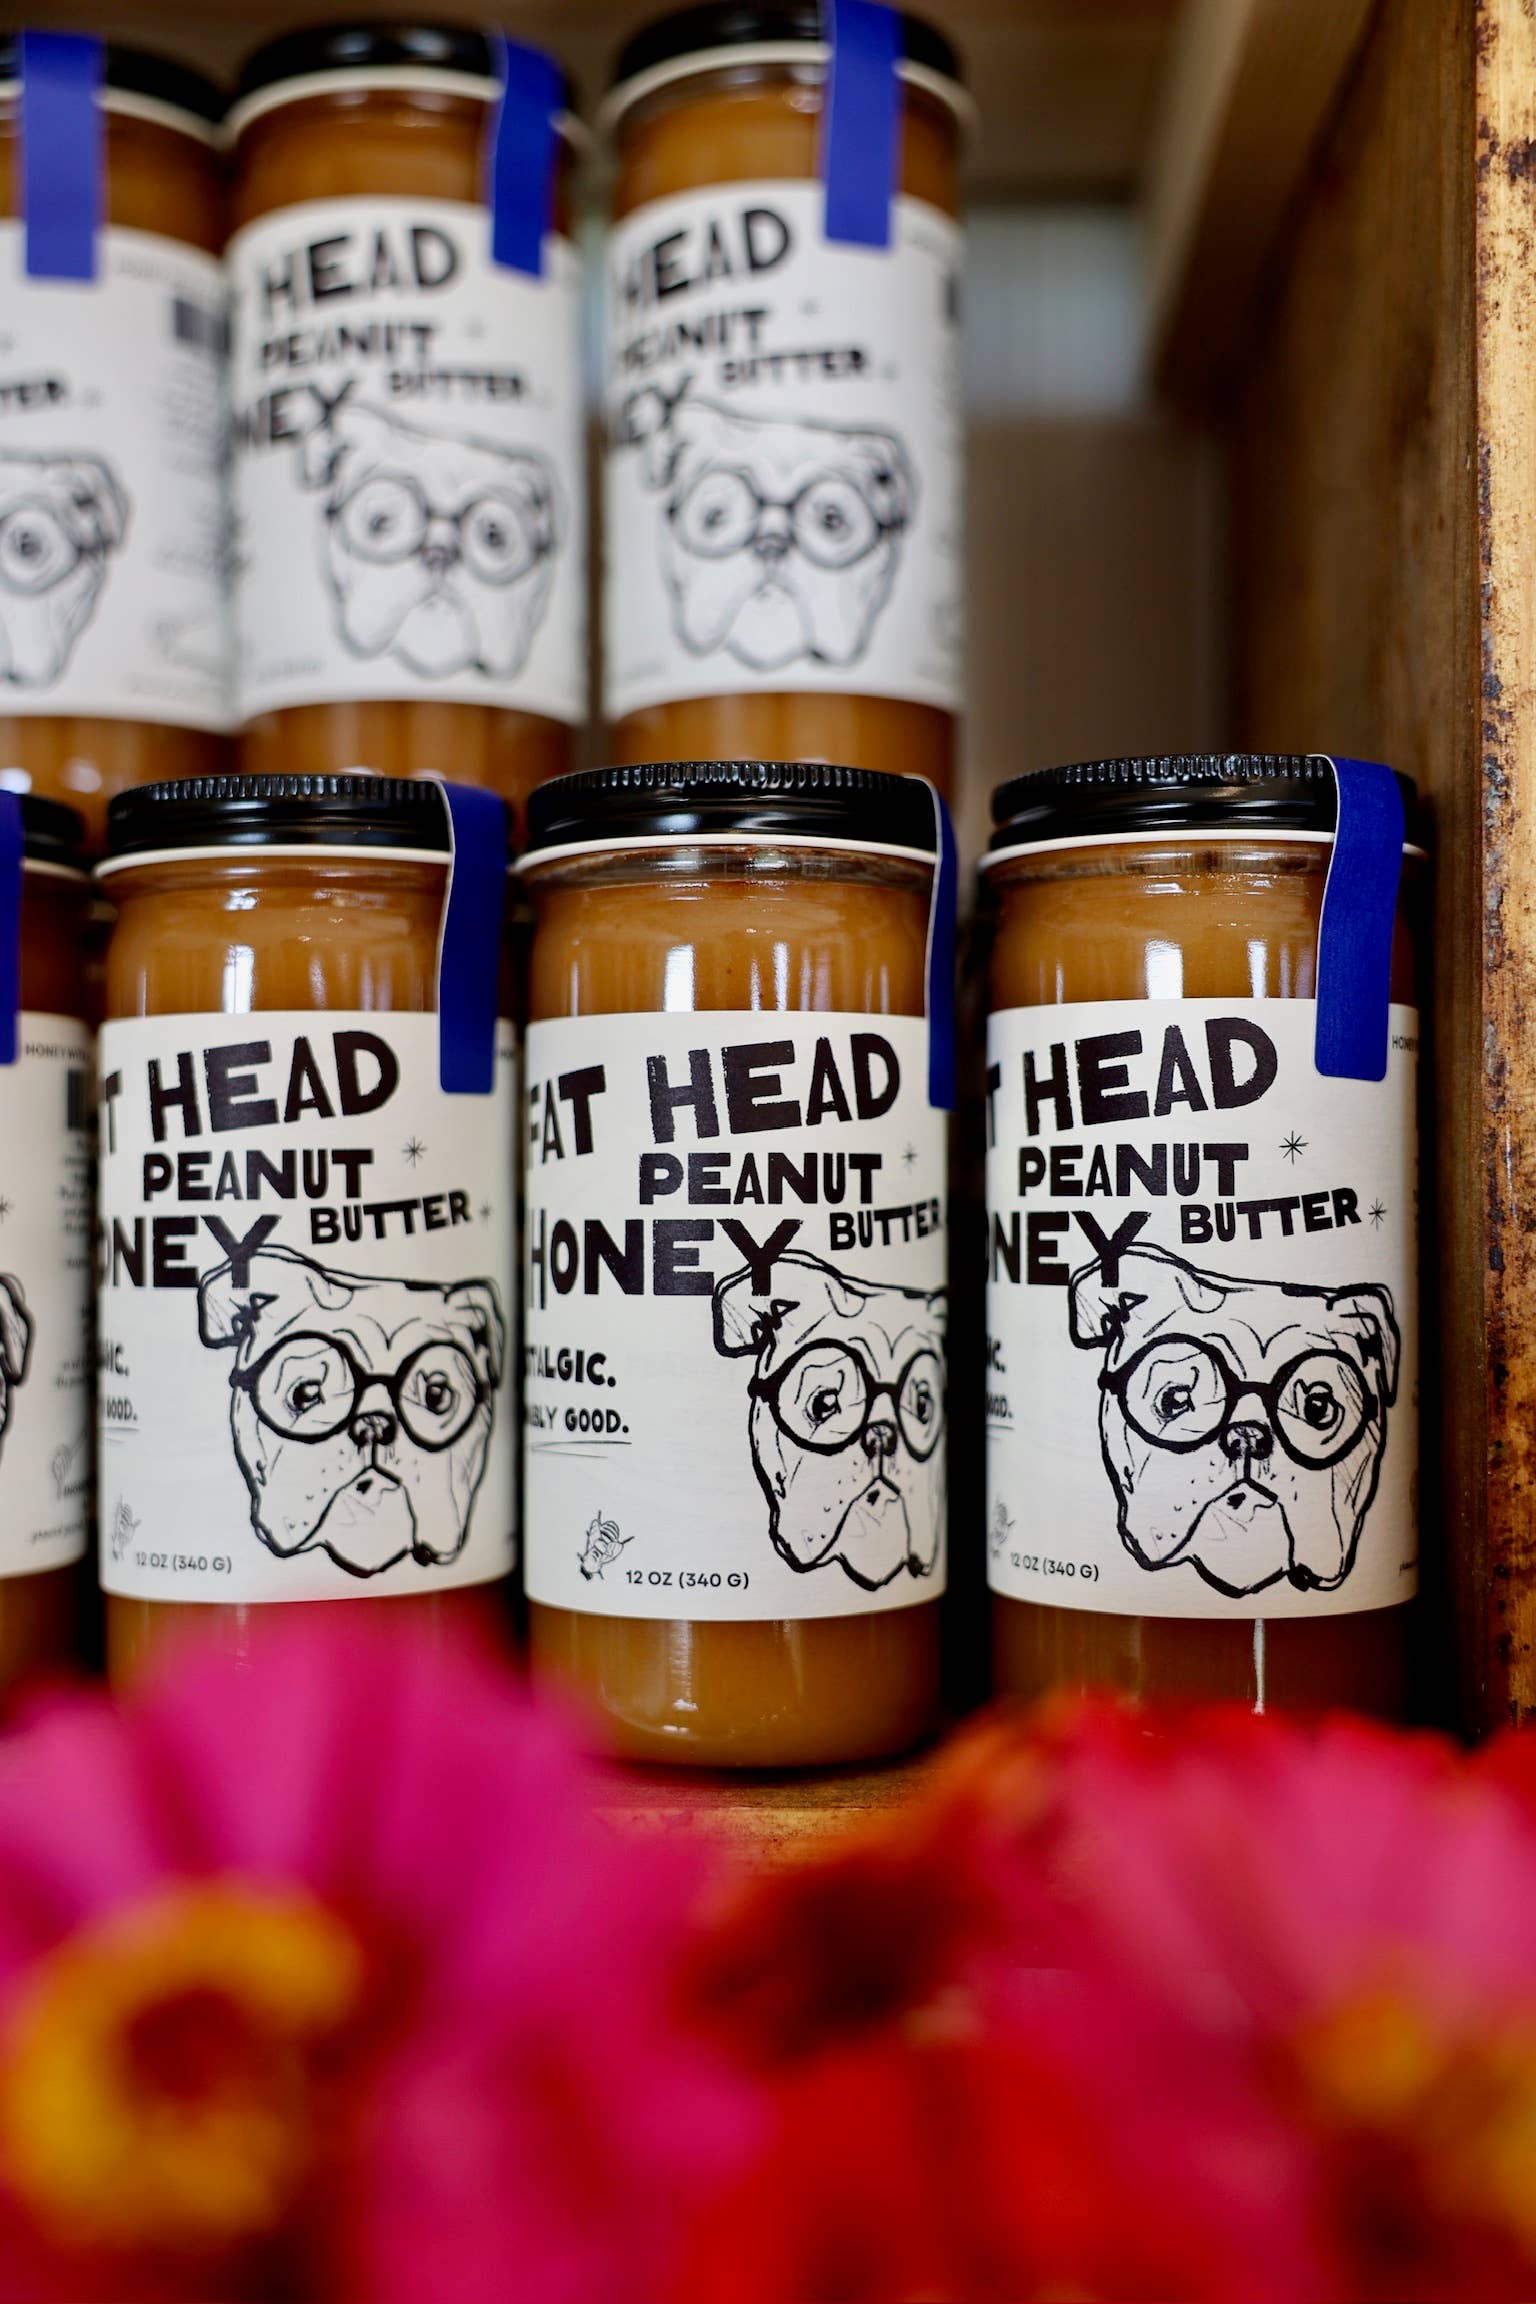 HEAD
PEANUT
BUTTER
NEY
HEAD
PEANUT
BUTTER
EY
TER
HEAD
PEANUT
BUTTER
ONEY
GIC.
GOOD.
12 OZ (340 G)
FAT HEAD
PEANUT
BUTTER
HONEY
STALGIC.
ABLY GOOD.
12 OZ (340 G)
T HEAD
PEANUT
BUTTER
NEY
IC.
OOD.
12 OZ (340 G)